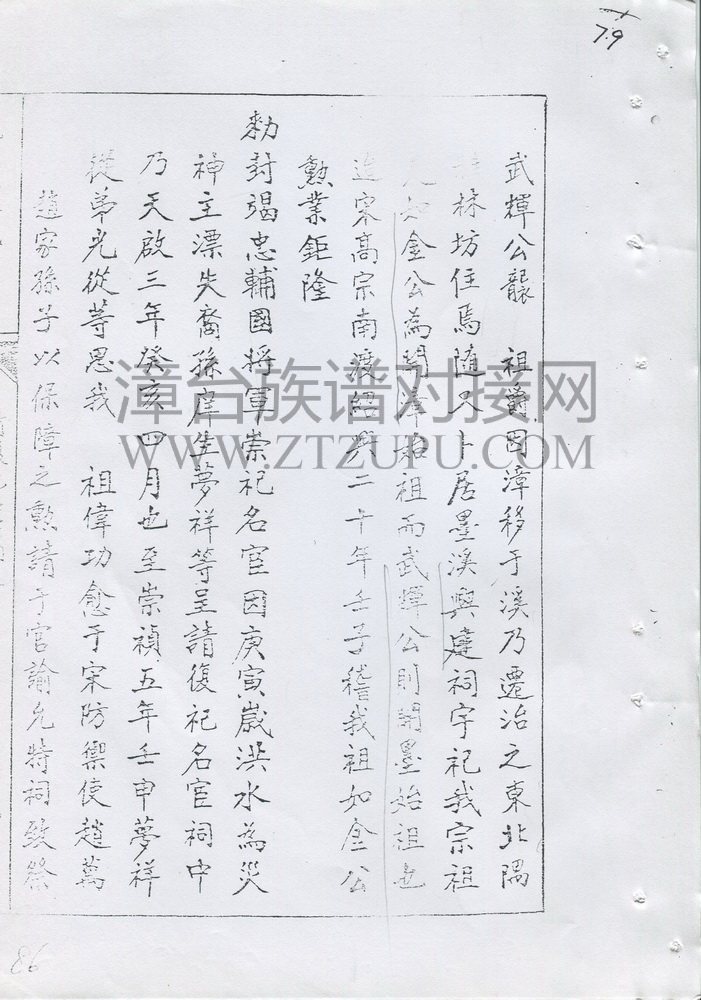 7.9
武輝公襲 祖爵因漳移于溪乃遷治之東北隅
林坊住焉随又卜居墨溪興建祠宇祀我宗祖
如金公為開漳始祖而武輝公則開墨始祖也
追宋高宗南渡紹興二十年壬子稽我祖如金公
勲業鉅隆
勅封謁忠輔國將軍崇祀名宦因庚寅歲洪水為災
神主漂失裔孫庠生夢祥等呈請復祀名宦祠中
乃天啟三年癸亥四月也至崇禎五年壬申夢祥
從弟光從等思我 祖偉功愈于宋防禦使趙萬
趙家孫子以保障之勲請于官諭允特祠致祭
86
漳台族谱对接网
WWW.ZTZUPU.COM